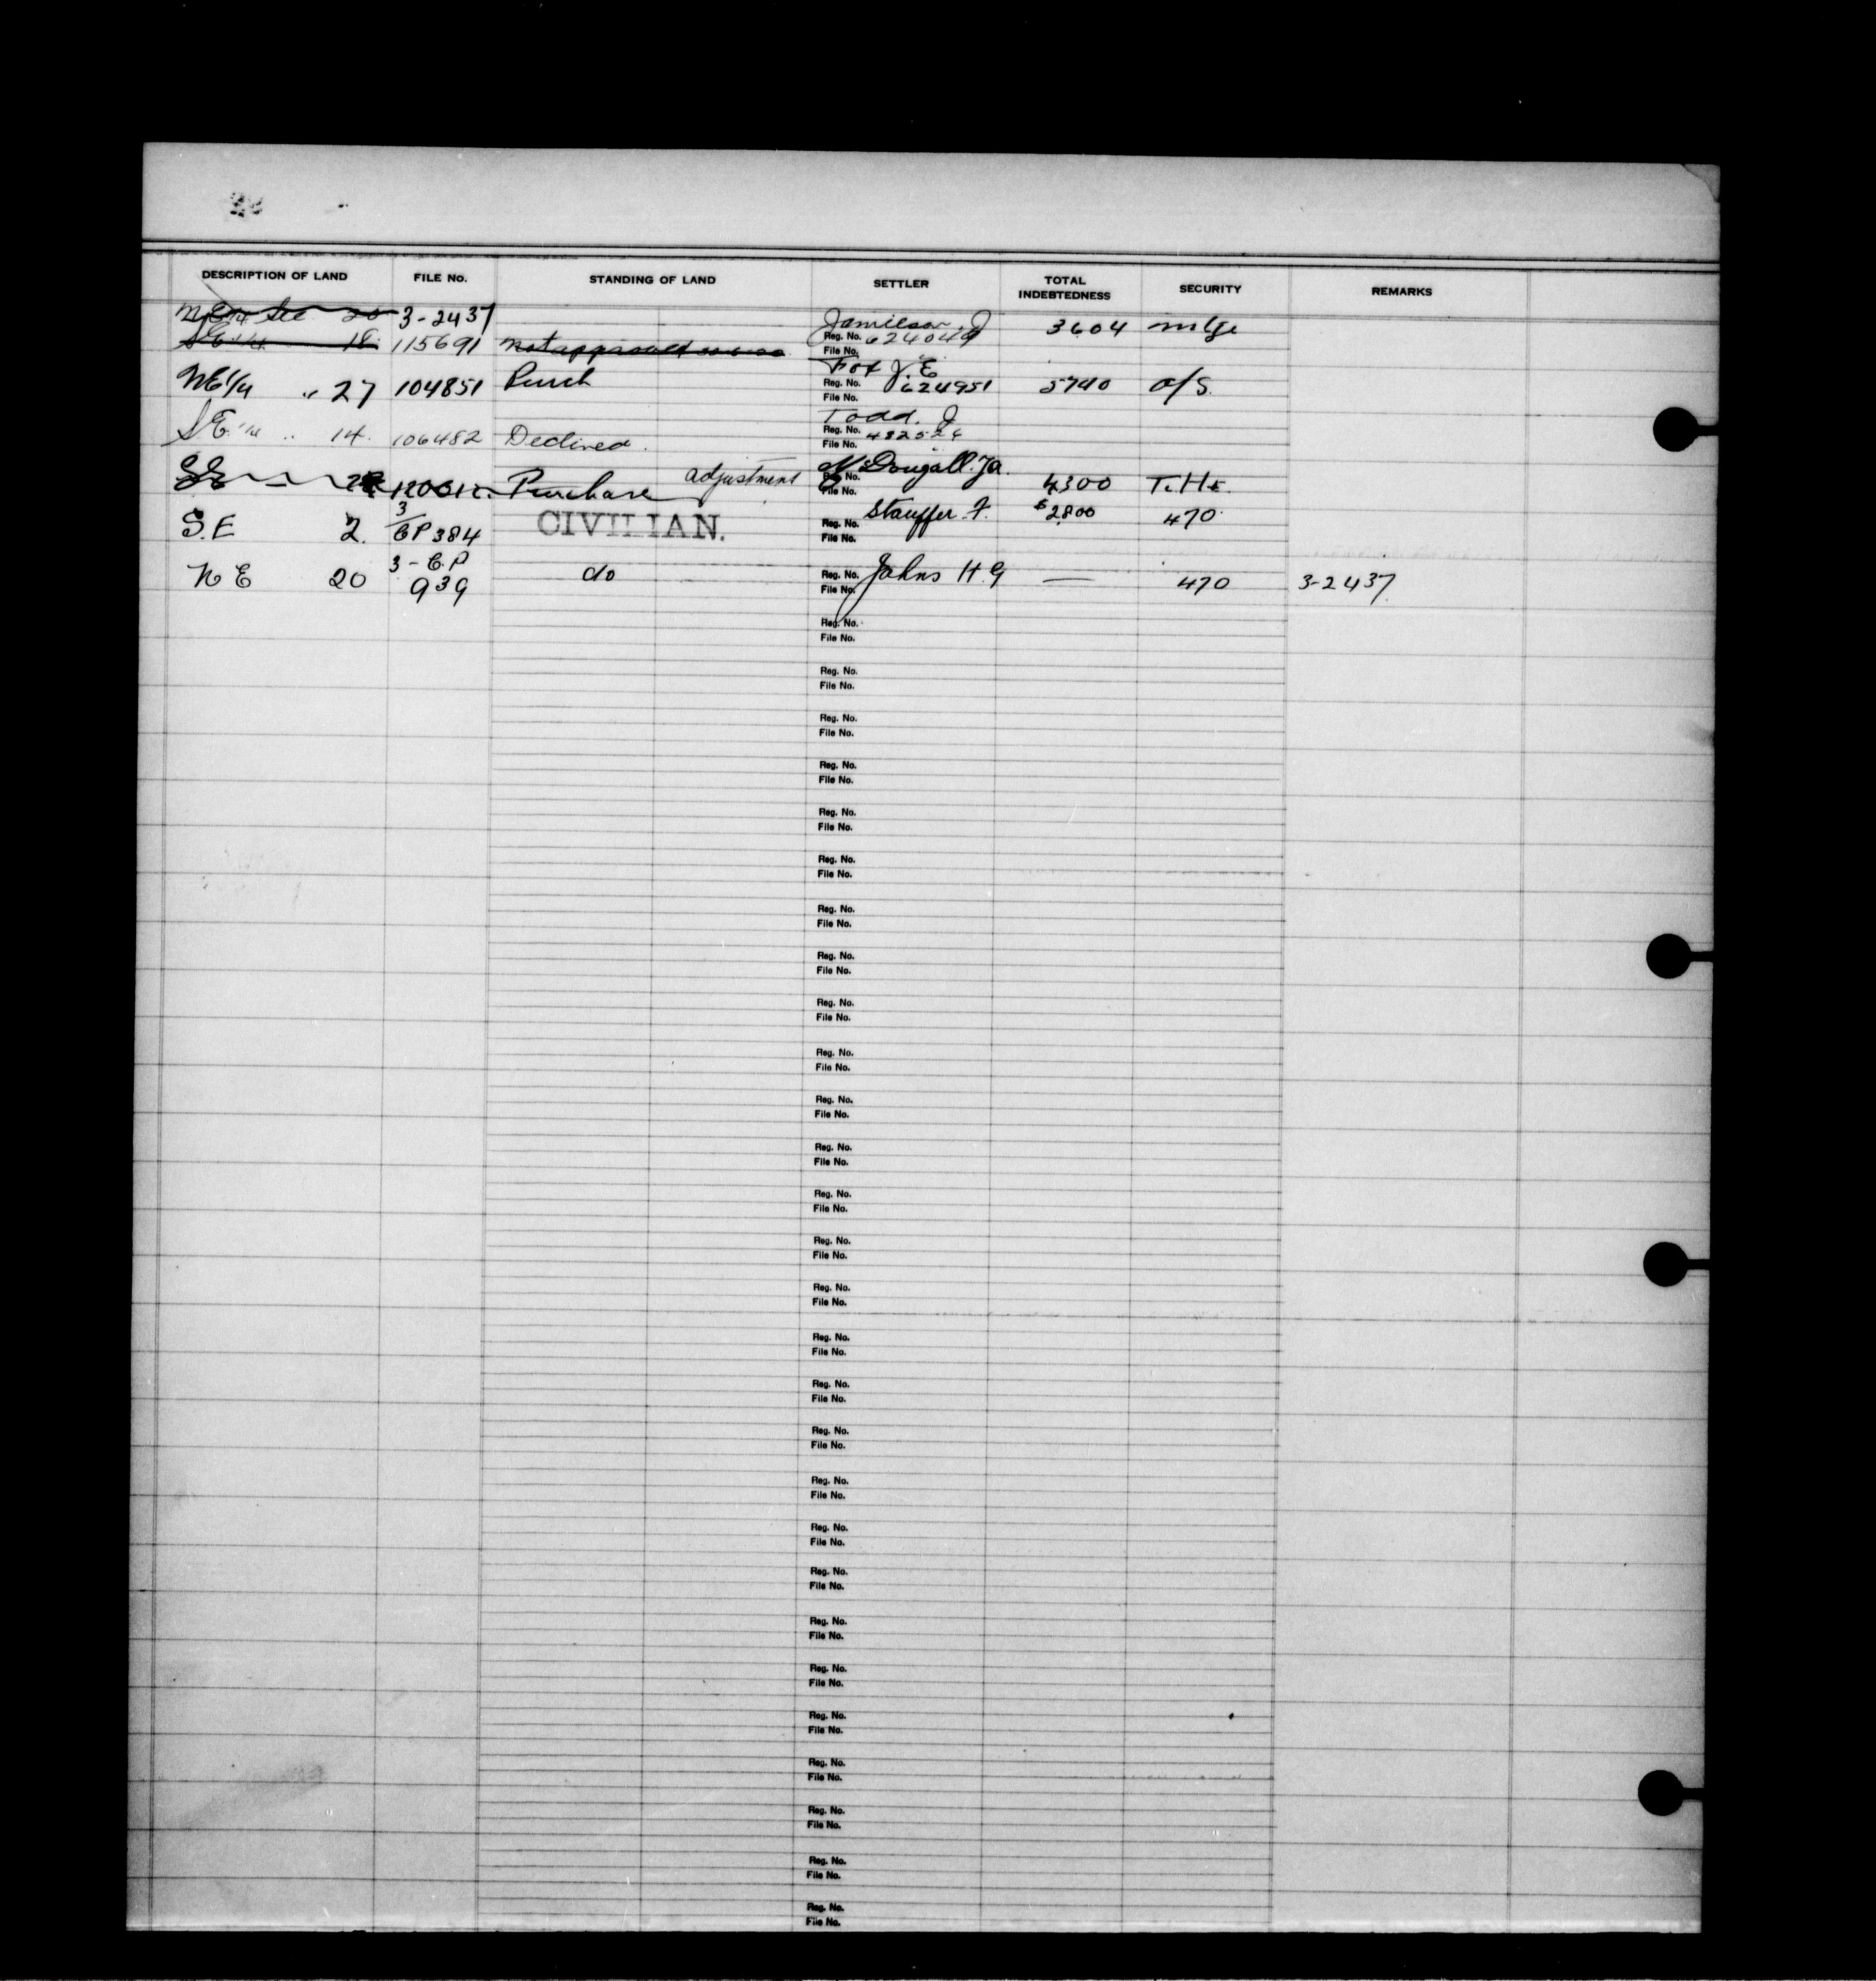 DESCRIPTION OF LAND FILE No. STANDING OF LAND SETTLER TOTAL INDEBTEDNESS SECURITY REMARKS
NE 1/4 Sec 20 3-2437 Jamieson. J 3604 mtge
SE 1/4 18 115691 not approved Reg. No. 624049
File No.
Fox J. E
NE 1/4 " 27 104851 Purch Reg. No. 624951 5740 o/s.
File No.
Todd. J
SE 1/4 " 14. 106482 Declined. Reg. No. 482526
File No.
McDougall. Ja.
Purchase adjustment Reg. No. 4300
File No.
S.E 2. 3/CP 384 CIVILIAN. Stauffer. F. $2800 470
Reg. No.
File No.
NE 20 3-C.P 939 do Reg. No. Johns H. G — 470 3-2437
File No.
Reg. No.
File No.
Reg. No.
File No.
Reg. No.
File No.
Reg. No.
File No.
Reg. No.
File No.
Reg. No.
File No.
Reg. No.
File No.
Reg. No.
File No.
Reg. No.
File No.
Reg. No.
File No.
Reg. No.
File No.
Reg. No.
File No.
Reg. No.
File No.
Reg. No.
File No.
Reg. No.
File No.
Reg. No.
File No.
Reg. No.
File No.
Reg. No.
File No.
Reg. No.
File No.
Reg. No.
File No.
Reg. No.
File No.
Reg. No.
File No.
Reg. No.
File No.
Reg. No.
File No.
Reg. No.
File No.
Reg. No.
File No.
Reg. No.
File No.
Reg. No.
File No.